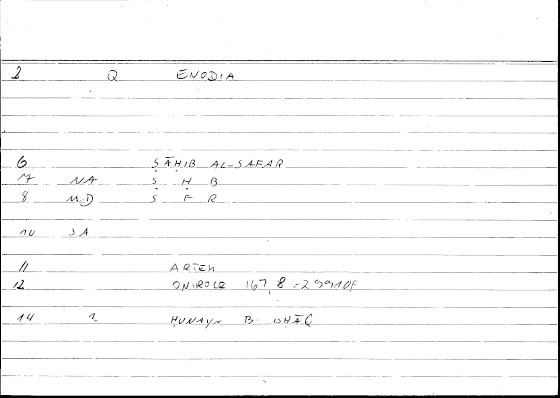 2 Q ENODIA
6 ṢĀḤIB AL-SAFAR
7 NA Ṣ Ḥ B
8 M.D S F R
10 SA
11 ARTEM
12 ONIROCR 167, 8 = 299 10F
14 2 ḤUNAYN B. ISḤĀQ